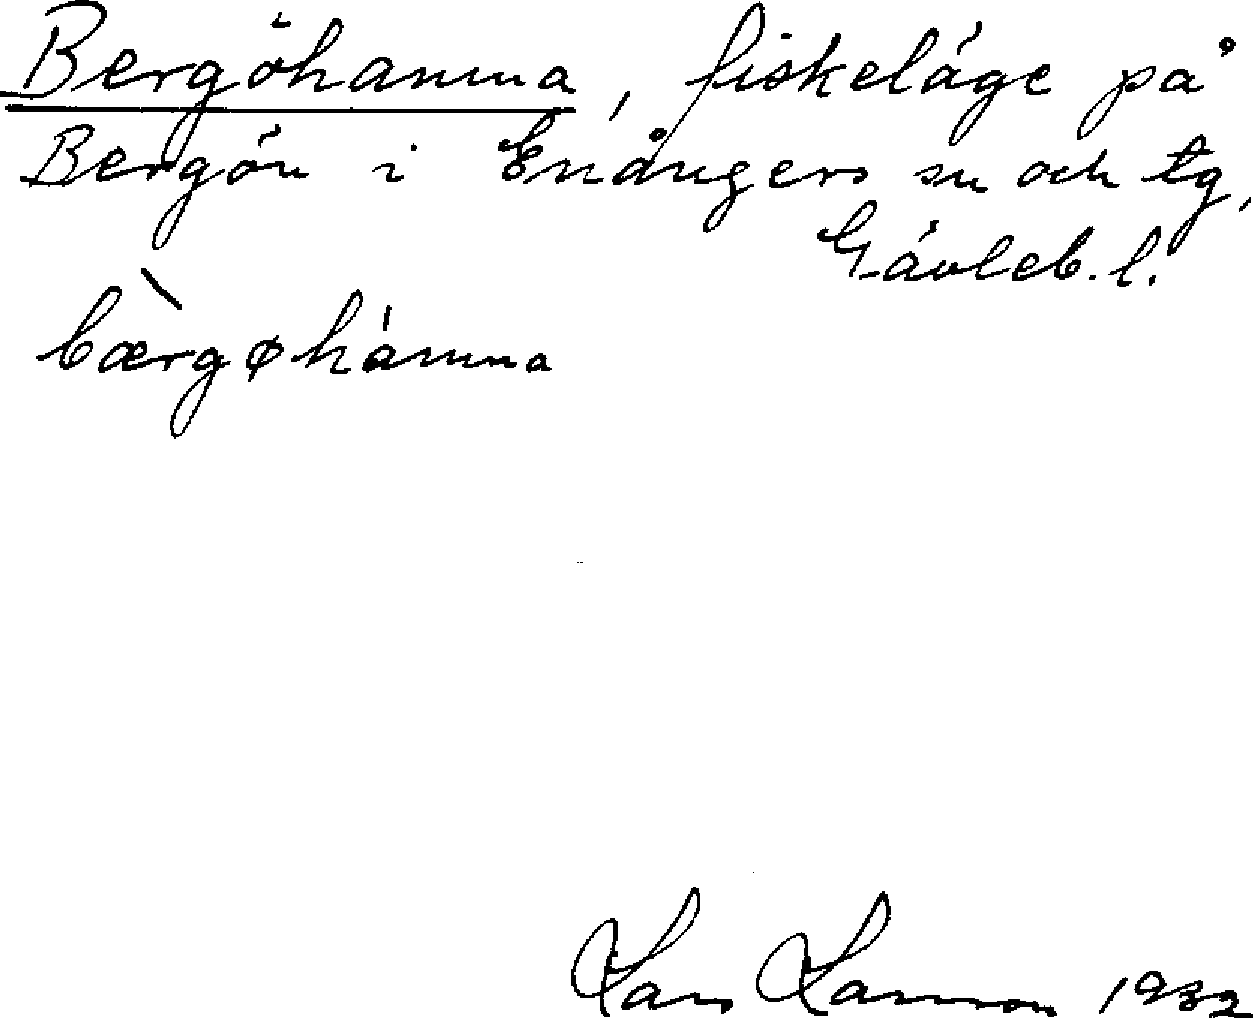 Bergöhamna, fiskeläge på
Bergön i Enångers sn och tg,
Gävleb. l.
bæ̀rgøhámna
Lars Larsson 1932